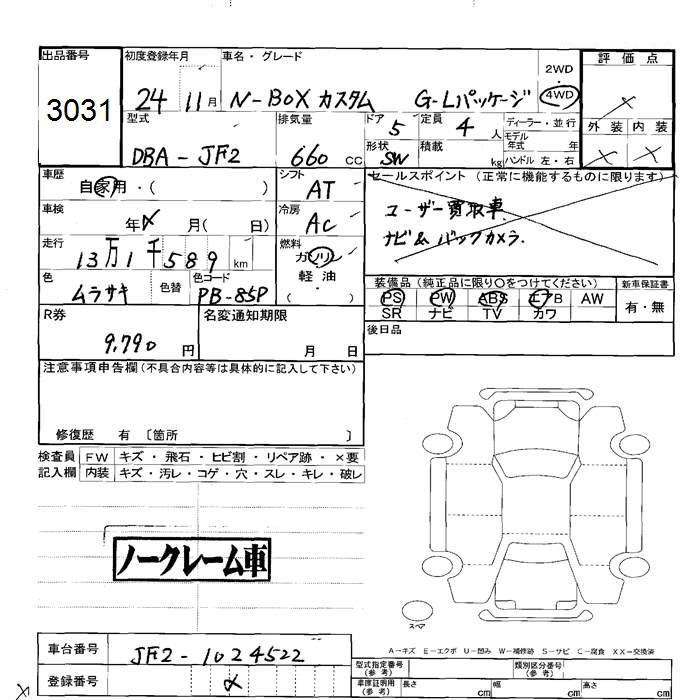 出品番号
3031
初度登録年月
24 11月
車名・グレード
N-BOX カスタム G-Lパッケージ
2WD
・
4WD
評価点
×
外装 内装
× ×
型式
DBA-JF2
排気量
660 cc
ドア 5
形状 SW
定員 4 人
積載 kg
ディーラー・並行
モデル年式 年
ハンドル 左・右
車歴
自家用・( )
シフト
AT
セールスポイント (正常に機能するものに限ります)
ユーザー買取車
ナビ& バックカメラ.
車検
年 月( 日)
冷房
AC
走行
13万1千589 km
燃料
ガソリン
軽油
( )
色
ムラサキ
色替
色コード
PB-85P
装備品 (純正品に限り○をつけてください)
PS PW ABS エアB AW
SR ナビ TV カワ
新車保証書
有・無
R券
9,790 円
名変通知期限
月 日
後日品
注意事項申告欄 (不具合内容等は具体的に記入して下さい)
修復歴 有 〔箇所 〕
検査員記入欄
FW キズ・飛石・ヒビ割・リペア跡・×要
内装 キズ・汚レ・コゲ・穴・スレ・キレ・破レ
ノークレーム車
スペア
A-キズ E-エクボ U-凹み W-補修跡 S-サビ C-腐食 XX-交換済
車台番号
JF2-1024522
登録番号
型式指定番号(参考)
類別区分番号(参考)
車庫証明用(参考) 長さ cm 幅 cm 高さ cm